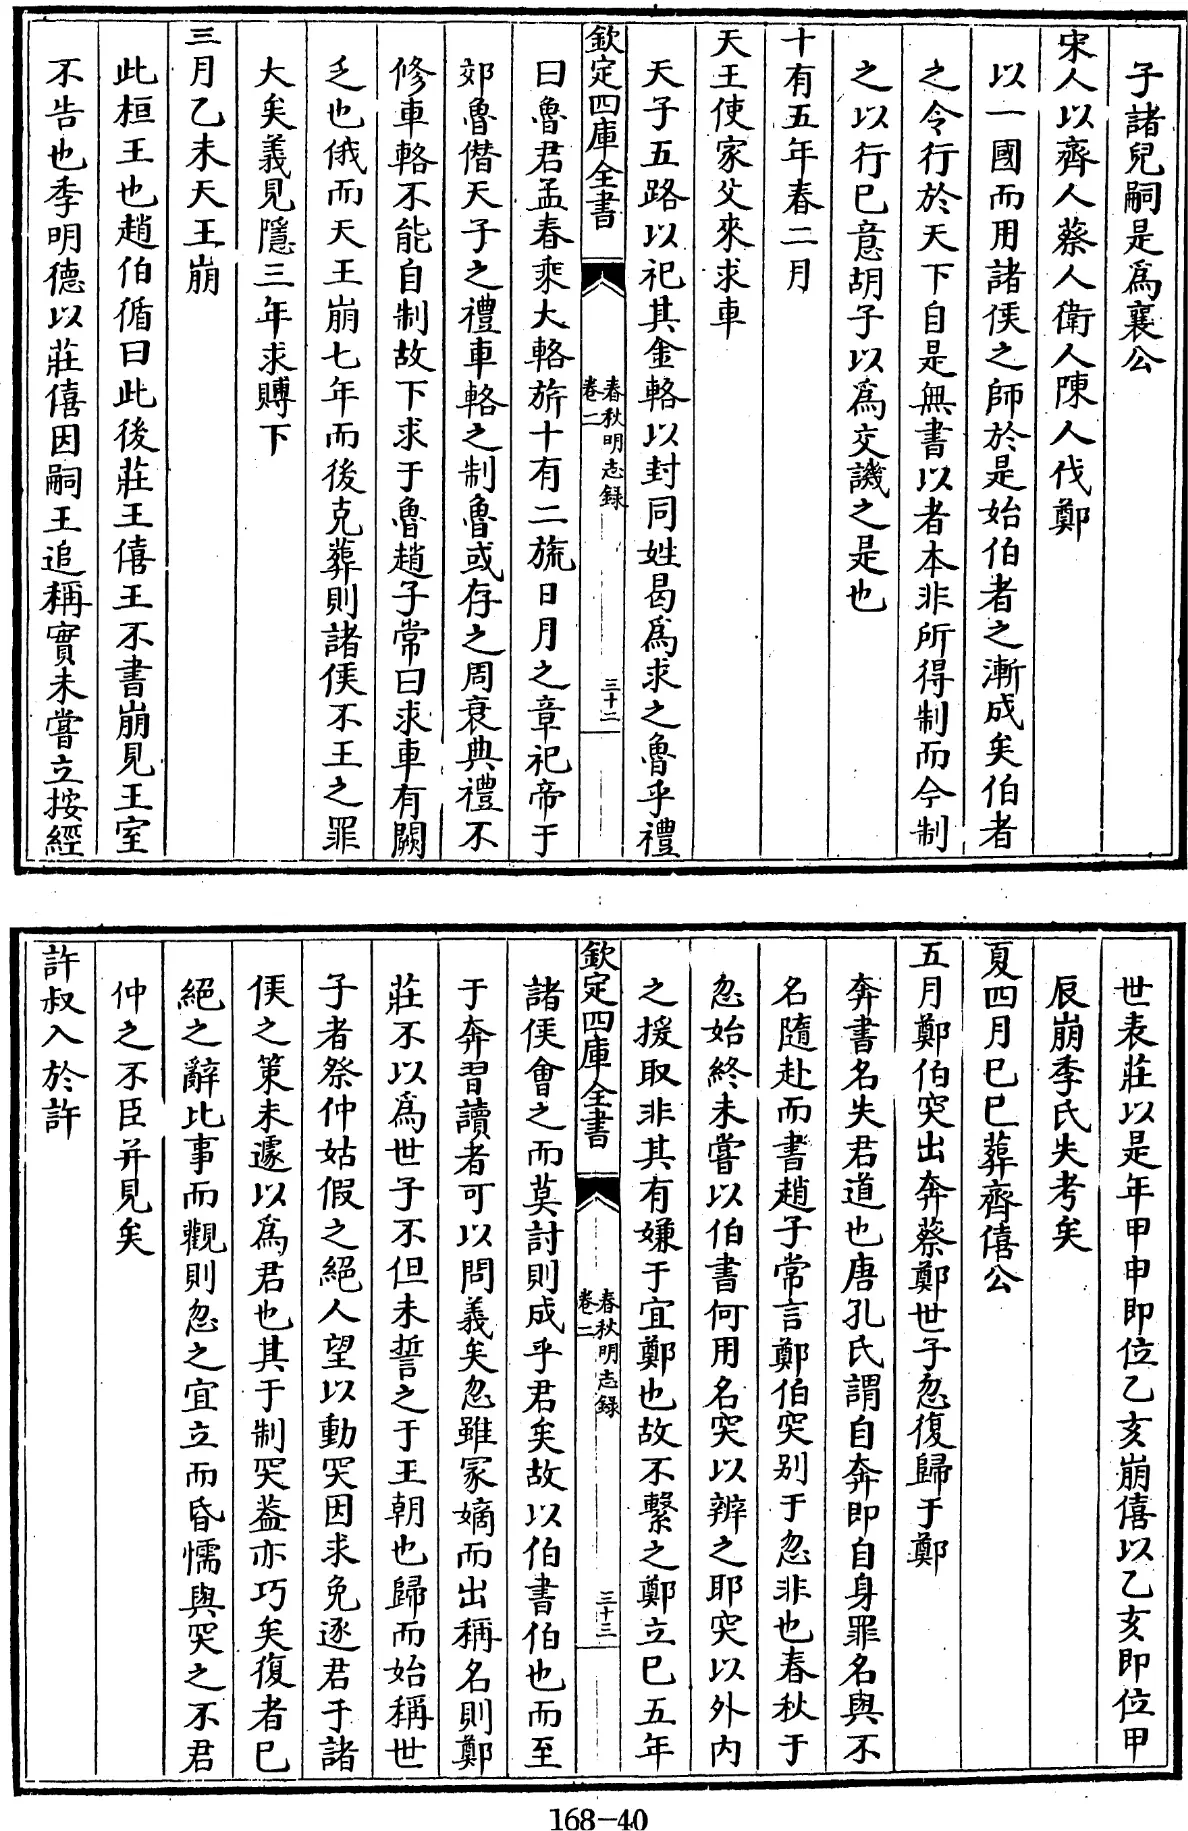 子諸兒嗣是爲襄公
宋人以齊人蔡人衛人陳人伐鄭
以一國而用諸侯之師於是始伯者之漸成矣伯者
之令行於天下自是無書以者本非所得制而今制
之以行巳意胡子以爲交譏之是也
十有五年春二月
天王使家父來求車
天子五路以祀其金輅以封同姓曷爲求之魯乎禮
欽定四庫全書
春秋明志録
卷二
三十二
曰魯君孟春乘大輅旂十有二旒日月之章祀帝于
郊魯僭天子之禮車輅之制魯或存之周衰典禮不
修車輅不能自制故下求于魯趙子常曰求車有闕
乏也俄而天王崩七年而後克葬則諸侯不王之罪
大矣義見隱三年求賻下
三月乙未天王崩
此桓王也趙伯循曰此後莊王僖王不書崩見王室
不告也季明德以莊僖因嗣王追稱實未嘗立按經
世表莊以是年甲申即位乙亥崩僖以乙亥即位甲
辰崩季氏失考矣
夏四月巳巳葬齊僖公
五月鄭伯突出奔蔡鄭世子忽復歸于鄭
奔書名失君道也唐孔氏謂自奔即自身罪名與不
名隨赴而書趙子常言鄭伯突别于忽非也春秋于
忽始終未嘗以伯書何用名突以辨之耶突以外内
之援取非其有嫌于宜鄭也故不繫之鄭立巳五年
欽定四庫全書
春秋明志録
卷二
三十三
諸侯會之而莫討則成乎君矣故以伯書伯也而至
于奔習讀者可以問義矣忽雖冡嫡而出稱名則鄭
莊不以爲世子不但未誓之于王朝也歸而始稱世
子者祭仲姑假之絕人望以動突因求免逐君于諸
侯之策未遽以爲君也其于制突葢亦巧矣復者巳
絕之辭比事而觀則忽之宜立而昏懦與突之不君
仲之不臣并見矣
許叔入於許
168-40